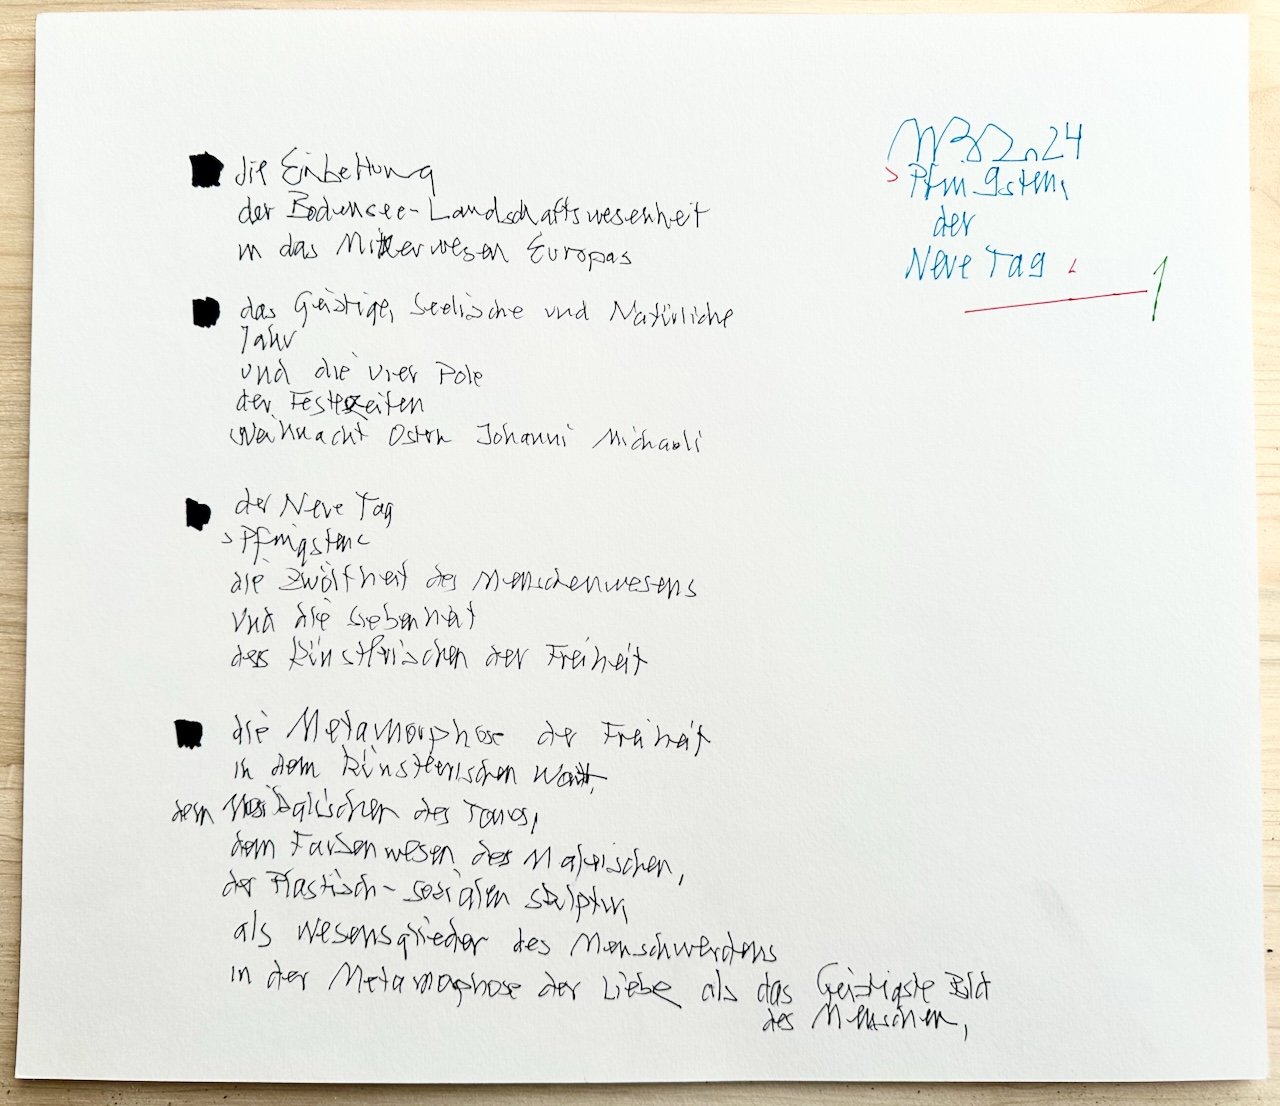 24
›Pfingsten,
der
Neue Tag‹
1
die Einbettung
der Bodensee-Landschaftswesenheit
in das Mitterwesen Europas
das Geistige, Seelische und Natürliche
Jahr
und die vier Pole
der Festzeiten
Weihnacht Ostern Johanni Michaeli
der Neue Tag
›Pfingsten‹
die Zwölfheit des Menschenwesens
und die Siebenheit
des Künstlerischen der Freiheit
die Metamorphose der Freiheit
in dem künstlerischen Wort,
dem Musikalischen des Tones,
dem Farbenwesen des Malerischen,
der Plastisch-sozialen Skulptur,
als Wesensglieder des Menschwerdens
in der Metamorphose der Liebe als das Geistigste Bild
des Menschen,